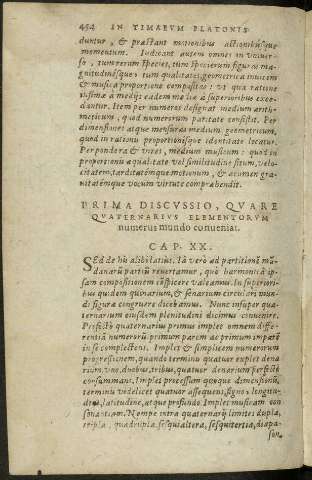 454 IN TIMAEVM PLATONIS
duntur, & præstant motionibus actionibúsque
momentum. Iudicant autem omnes in vniuer-
so, tum rerum species, tum specierum figuras ma-
gnitudinésque: tum qualitates, geometrica inuicem
& musica proportione compositas: vt qua ratione
vltimæ à medijs eadem mediæ à superioribus exce-
dantur. Item per numeros designat medium arith-
meticum, quod numerorum paritate consistit. Per
dimensiones atque mensuras medium geometricum,
quod in rationū proportionísque identitate locatur.
Per pondera & vires, medium musicum: quod in
proportionū æqualitate vel similitudine situm, velo-
citatem, tarditatémque motionum, & acumen gra-
uitatémque vocum virtute comprǽhendit.
PRIMA DISCVSSIO, QVARE
QVATERNARIVS ELEMENTORVM
numerus mundo conueniat.
CAP. XX.
Sed de his alibi latius. Iā verò ad partitionē mū-
danarū partiū reuertamur, quò harmonicā ip-
sam compositionem cōspicere valeamus. In superiori-
bus quidem quinarium, & senarium circulari mun-
di figuræ congruere dicebamus. Nunc insuper qua-
ternarium eiusdem plenitudini dicimus conuenire.
Profectò quaternarius primus implet omnem diffe-
rentiā numerorū primum parem ac primum imparē
in se complectens. Implet & simplicem numerorum
progressionem, quando terminis quatuor explet dena
rium, vno, duobus, tribus, quatuor denarium perfectè
consummans. Implet processum quoque dimensionū,
terminis videlicet quatuor assequens, signo, longitu-
dine, latitudine, atque profundo. Implet musicam con
sonantiam. Nempe intra quaternarij limites dupla,
tripla, quadrupla, sesquialtera, sesquitertia, diapa-
son,